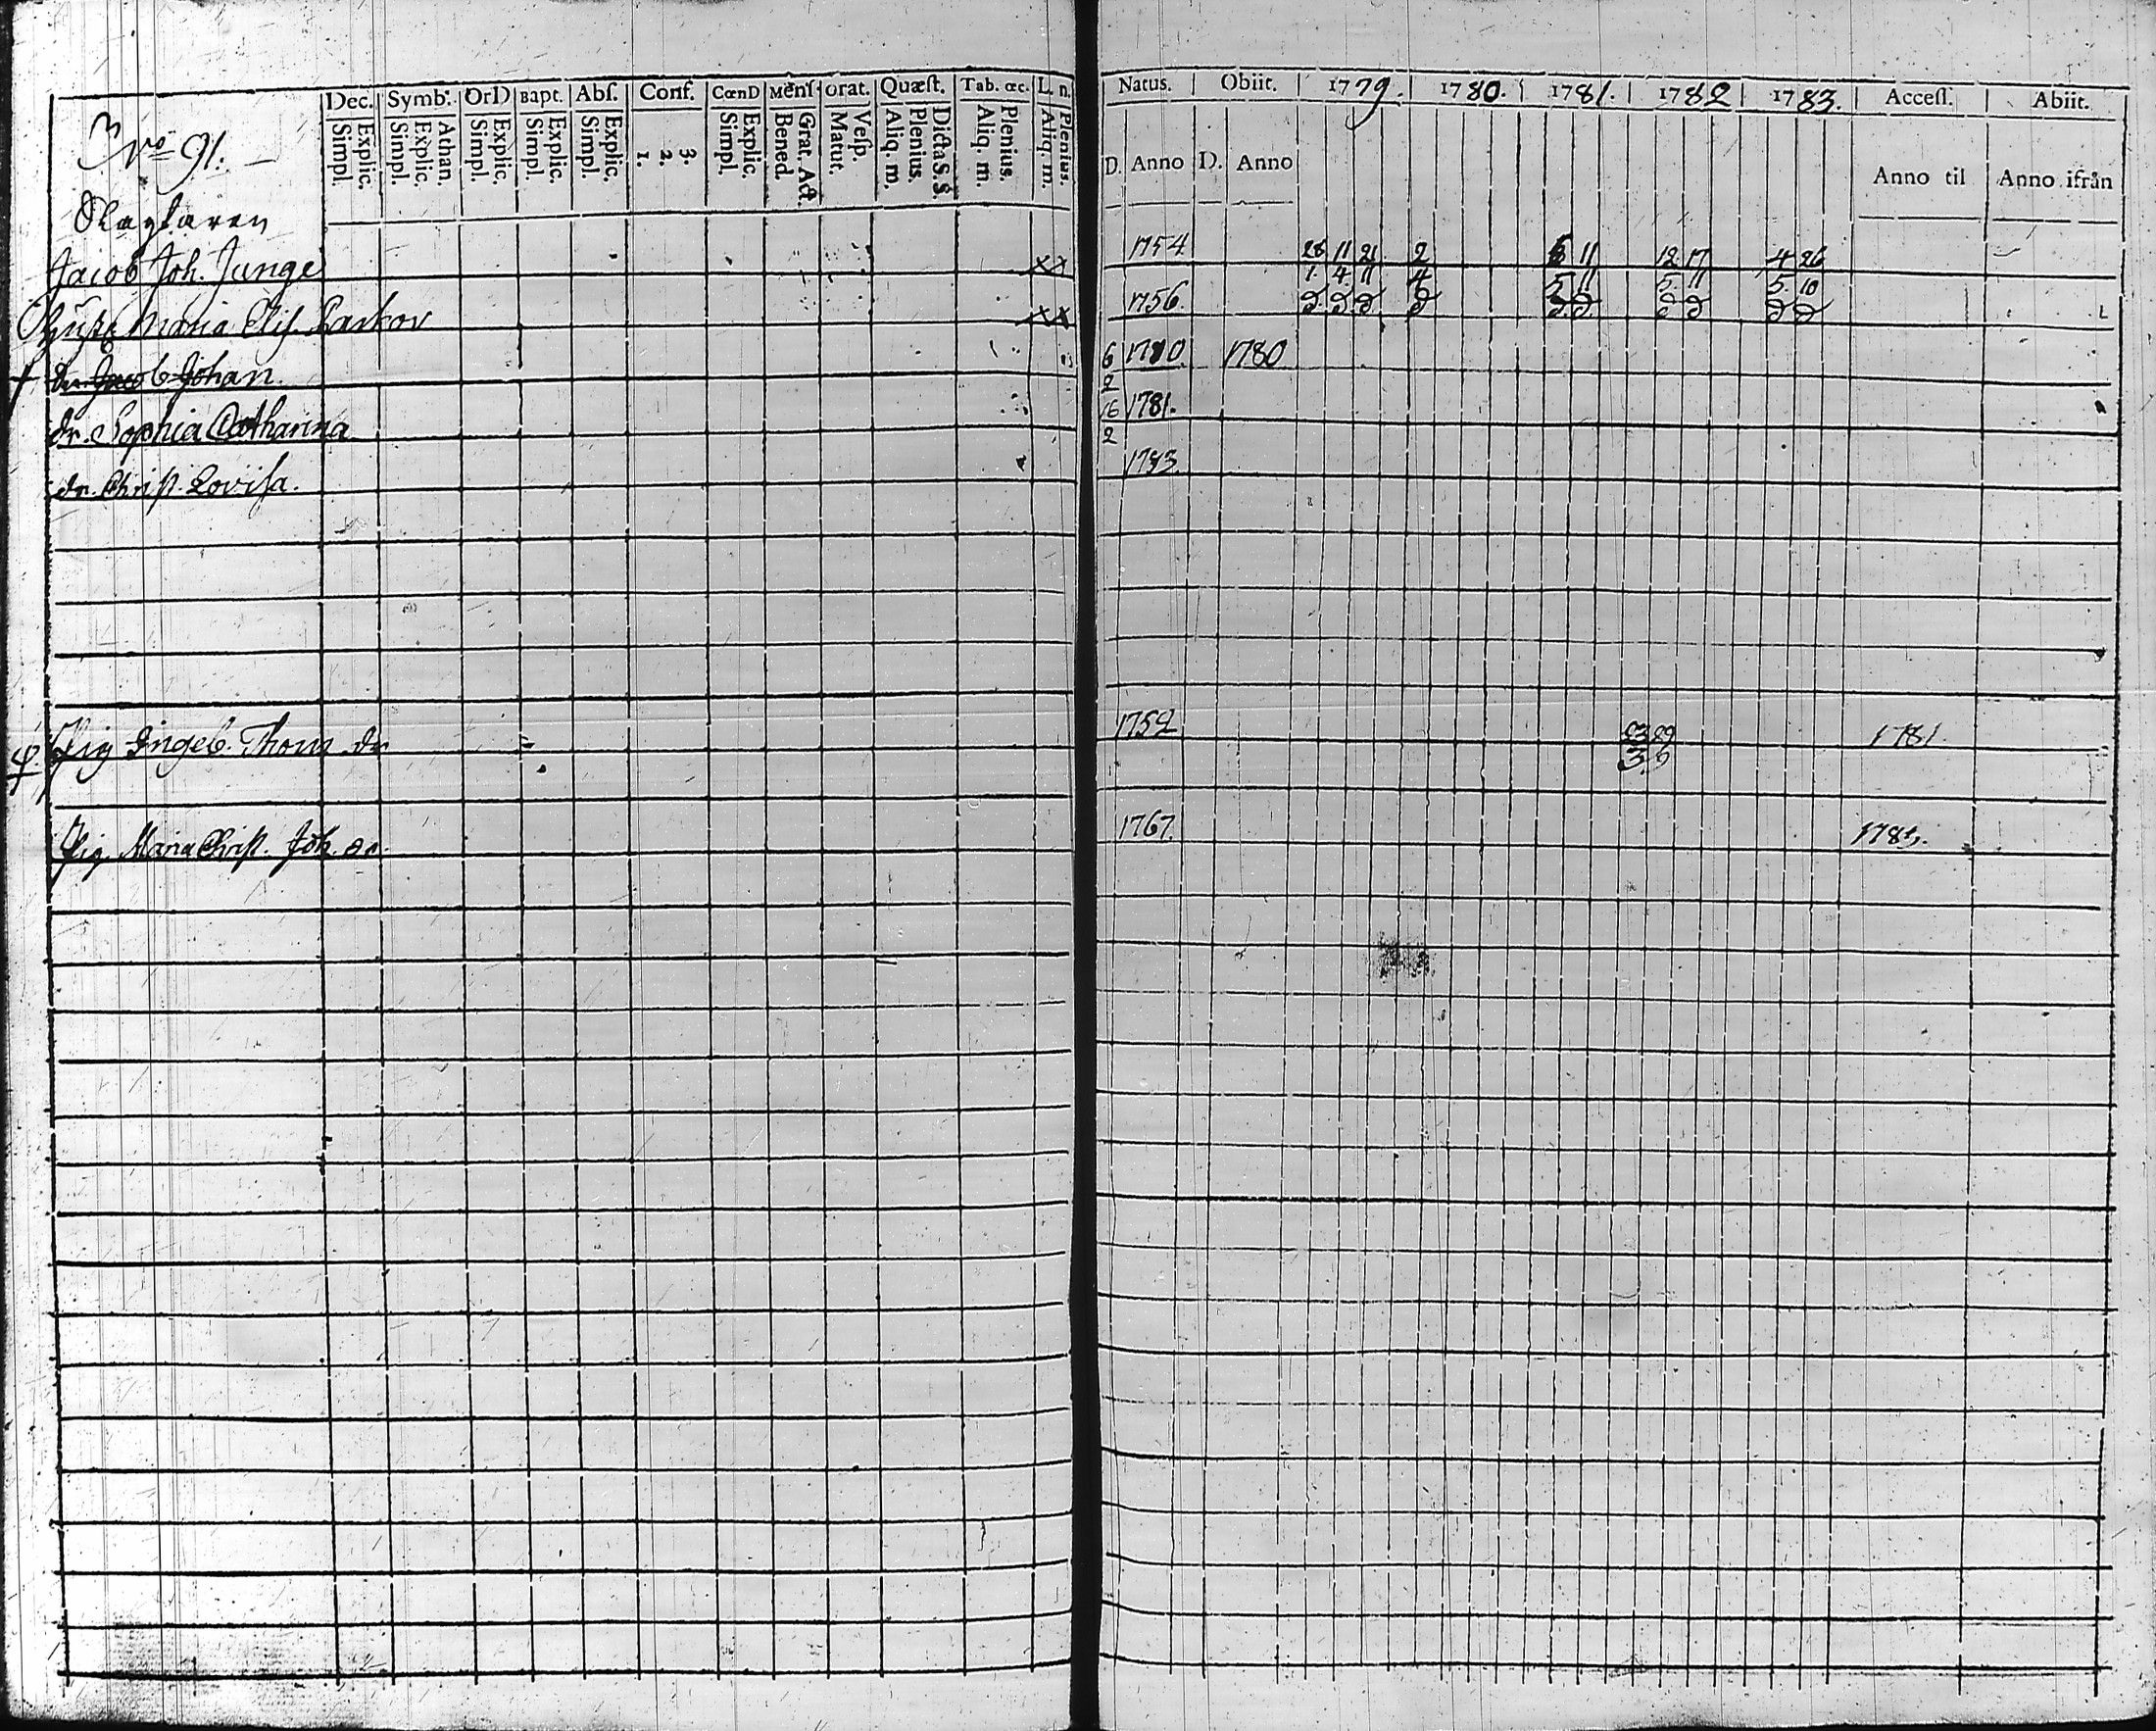 Dec. Symb: OrD Bapt. Abſ. Conf. CœnD Menſ. Orat. Quæſt. Tab. œc. L. n.
Simpl. Explic. Simpl. Explic. Athan. Simpl. Explic. Simpl. Explic. Simpl. Explic. 1. 2. 3. Simpl. Explic. Bened. Grat. Act. Matut. Veſp. Aliq. m. Plenius. Dicta S.S. Aliq. m. Plenius. Aliq. m. Plenius.
Nro 91.
Slagtaren
Jacob Joh. Junge xx
Hustr. Maria Elis. Paskov xx
† dr. Jacob Johan.
dr. Sophia Catharina
dr. Christ. Lovisa.
Pig Ingeb. Thom dr
Pig. Maria Christ. Joh. dr.
Natus. Obiit. 1779. 1780. 1781. 1782 1783. Acceſſ. Abiit.
D. Anno D. Anno Anno til Anno ifrån
1754 28 11 21 2 6 11 12 17 4 26
1 4 11 4 5 11 5 11 5 10
1756.
6 1780 1780
2
16 1781.
2
1783.
1752 1781
1767.